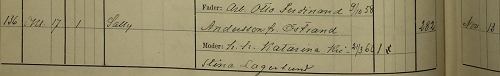 Fader: Arb. Otto Ferdinand 9/10 58
136 Juli 17 1 Sally Andersson, Östrand 282 Nov. 13
Moder: h. h. Katarina Kri- 24/3 60 1
stina Lagerlund